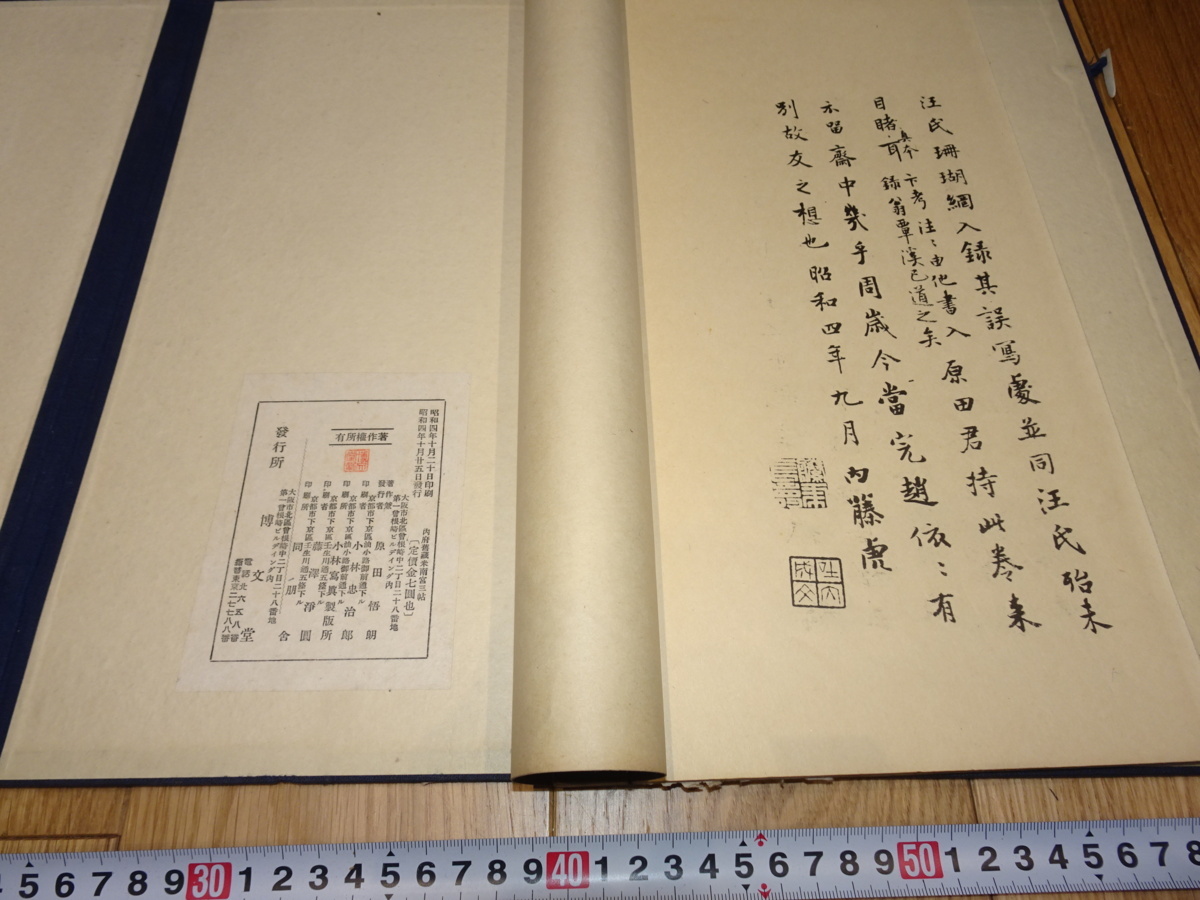 汪氏珊瑚網入録其誤寫處並同汪氏殆未
目睹真本卞考注〻由他書入原田君持此卷来
耳録翁覃溪已道之矣
示留齋中幾乎周歳今當完趙依〻有
別故友之想也昭和四年九月内藤虎
昭和四年十月二十日印刷
昭和四年十月廿五日發行
内府舊藏米南宮三帖
〔定價金七圓也〕
著作權所有
大阪市北區曾根崎中二丁目二十八番地
第一曾根崎ビルデイング内
著作兼發行者 原田悟朗
京都市下京區油小路御前通下ル
印刷者 小林忠治郎
京都市下京區油小路御前通下ル
印刷所 小林寫眞製版所
京都市下京區壬生川通五條下ル
印刷者 藤澤淨圓
京都市下京區壬生川通五條下ル
印刷所 同朋舍
大阪市北區曾根崎中二丁目二十八番地
第一曾根崎ビルデイング内
發行所 博文堂
電話北六五八番
振替東京二七七八八番
5 6 7 8 9 30 1 2 3 4 5 6 7 8 9 40 1 2 3 4 5 6 7 8 9 50 1 2 3 4 5 6 7 8